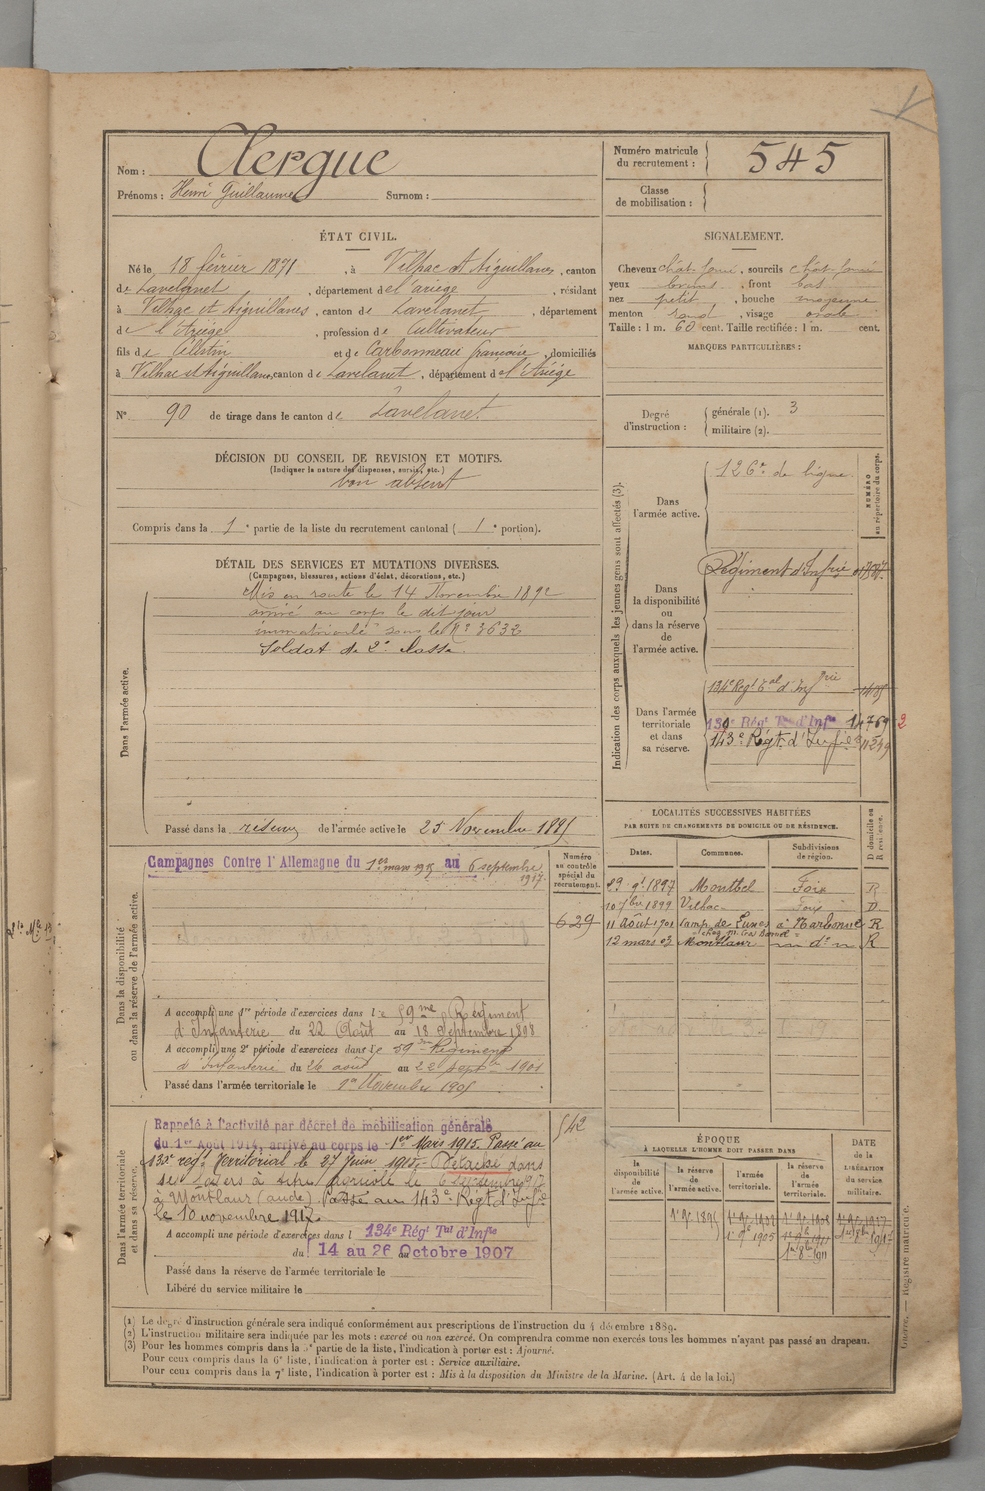 Nom : Clergue
Prénoms : Henri Guillaume Surnom :
Numéro matricule du recrutement : 545
Classe de mobilisation :
ÉTAT CIVIL.
Né le 18 février 1871, à Vilhac et Aiguillanes, canton
de Lavelanet, département de l'ariege, résidant
à Vilhac et Aiguillanes, canton de Lavelanet, département
de l'Ariège, profession de Cultivateur
fils de Célestin et de Carbonneau françoise, domiciliés
à Vilhac et Aiguillanes, canton de Lavelanet, département de l'Ariège
N° 90 de tirage dans le canton de Lavelanet
SIGNALEMENT.
Cheveux chât. foncé, sourcils chât. foncé
yeux bruns, front bas
nez petit, bouche moyenne
menton rond, visage ovale
Taille : 1 m. 60 cent. Taille rectifiée : 1 m. cent.
MARQUES PARTICULIÈRES :
Degré d'instruction : générale (1). 3
militaire (2).
DÉCISION DU CONSEIL DE REVISION ET MOTIFS.
(Indiquer la nature des dispenses, sursis, etc.)
bon absent
Compris dans la 1e partie de la liste du recrutement cantonal ( 1e portion).
DÉTAIL DES SERVICES ET MUTATIONS DIVERSES.
(Campagnes, blessures, actions d'éclat, décorations, etc.)
Dans l'armée active.
Mis en route le 14 Novembre 1892
arrivé au corps le dit jour
immatriculé sous le N° 3632
Soldat de 2e classe
Passé dans la réserve de l'armée active le 25 Novembre 1895
Indication des corps auxquels les jeunes gens sont affectés (3).
NUMÉRO au répertoire du corps.
Dans l'armée active.
126e de ligne
Dans la disponibilité ou dans la réserve de l'armée active.
Régiment d'Infrie
Dans l'armée territoriale et dans sa réserve.
134e Regt Tal d'Infrie
134e Régt Tal d'Infie 14769 2
143e Régt. d'Infie 11549
LOCALITÉS SUCCESSIVES HABITÉES
PAR SUITE DE CHANGEMENTS DE DOMICILE OU DE RÉSIDENCE.
Dates. Communes. Subdivisions de région. D domicile ou R résidence.
29 9bre 1897 Montbel Foix R
10 7bre 1899 Vilhac Foix D
11 Août 1901 Camp de Lunes à Narbonne R
12 mars 03 Montlaur d° R
Dans la disponibilité ou dans la réserve de l'armée active.
Numéro au contrôle spécial du recrutement.
Campagnes Contre l'Allemagne du 1er mars 1915 au 6 septembre 1917.
629
A accompli une 1re période d'exercices dans le 59me Régiment
d'Infanterie du 22 Août au 18 Septembre 1898
A accompli une 2e période d'exercices dans le 59me Régiment
d'Infanterie du 26 août au 22 septbre 1901
Passé dans l'armée territoriale le 1er Novembre 1905
Dans l'armée territoriale et dans sa réserve.
542
Rappelé à l'activité par décret de mobilisation générale
du 1er Août 1914, arrivé au corps le 1er Mars 1915. Passé au
régt Territorial le 27 Juin 1915. Détaché dans
ses foyers à titre agricole le 6 Septembre 1917
à Montlaur (aude). Passé au 143e Régt d'Infie
le 10 novembre 1917.
A accompli une période d'exercices dans l 134e Régt Tal d'Infie
du 14 au 26 Octobre 1907
Passé dans la réserve de l'armée territoriale le
Libéré du service militaire le
ÉPOQUE À LAQUELLE L'HOMME DOIT PASSER DANS
la disponibilité de l'armée active. la réserve de l'armée active. l'armée territoriale. la réserve de l'armée territoriale. DATE de la LIBÉRATION du service militaire.
1er 9e 1895 1er 9e 1902 1er 9e 1908 1er 9e 1917
1er 9e 1905 1er 8e 1911
(1) Le degré d'instruction générale sera indiqué conformément aux prescriptions de l'instruction du 4 décembre 1889.
(2) L'instruction militaire sera indiquée par les mots : exercé ou non exercé. On comprendra comme non exercés tous les hommes n'ayant pas passé au drapeau.
(3) Pour les hommes compris dans la partie de la liste, l'indication à porter est : Ajourné.
Pour ceux compris dans la 6e liste, l'indication à porter est : Service auxiliaire.
Pour ceux compris dans la 7e liste, l'indication à porter est : Mis à la disposition du Ministre de la Marine. (Art. 4 de la loi.)
Guerre. — Registre matricule.